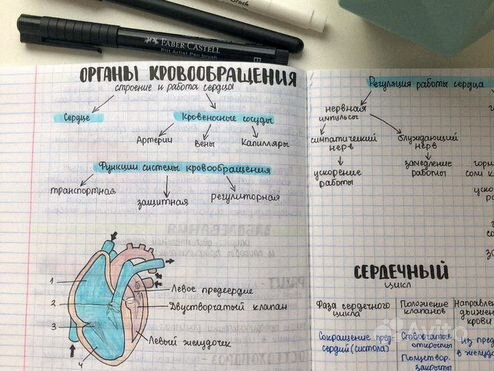 FABER-CASTELL
ОРГАНЫ КРОВООБРАЩЕНИЯ
строение и работа сердца
Сердце
Кровеносные сосуды
Артерии
Вены
Капилляры
Функции системы кровообращения
транспортная
защитная
регуляторная
1
2
3
4
Левое предсердие
Двустворчатый клапан
Левый желудочек
Регуляция работы сердца
нервная
импульсы
симпатический
нерв
ускорение
работы
блуждающий
нерв
замедление
работы
СЕРДЕЧНЫЙ
цикл
Фаза сердечного
цикла
Положение
клапанов
Направл
движени
крови
Сокращение пред
сердий (систола)
Створчатые
открыты
Полулу
закрыты
из пред
в желуд
Avito